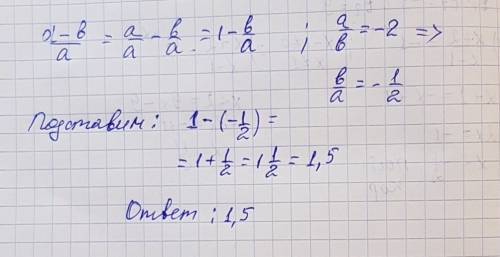 a-в/a = a/a - в/a = 1 - в/a ; a/в = -2 =>
в/a = -1/2
Подставим: 1-(-1/2) =
= 1+1/2 = 1 1/2 = 1,5
Ответ: 1,5